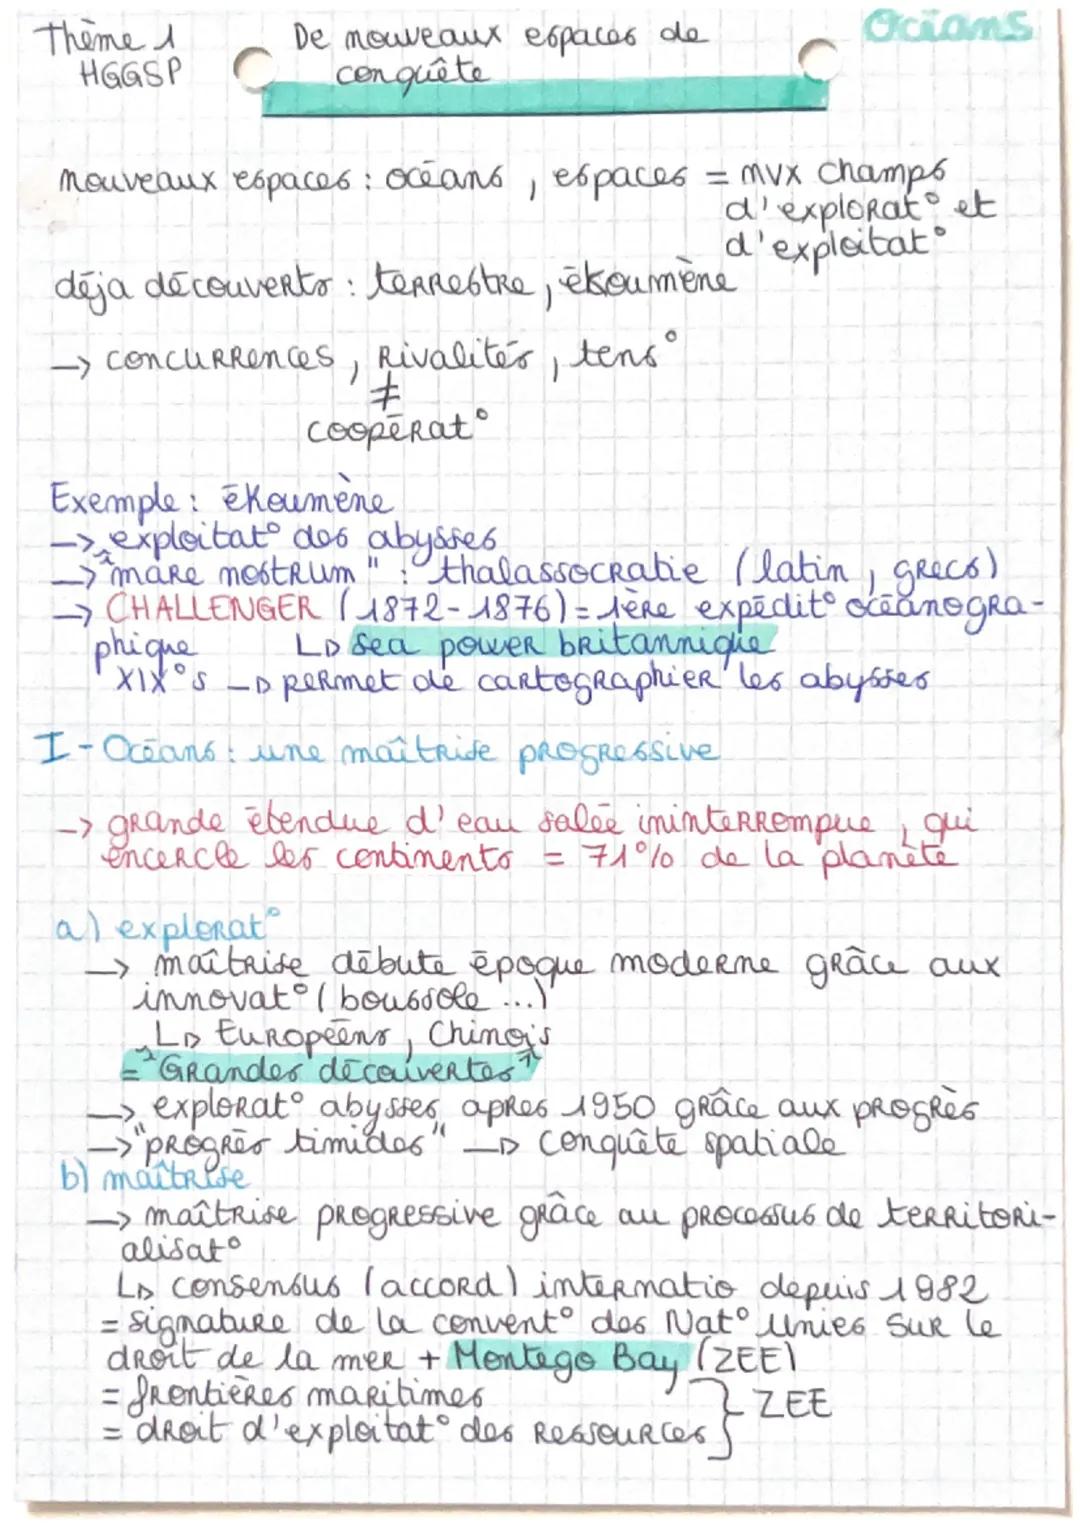 Thème 1
HGGSP
De nouveaux espaces de
conquête
Océans
nouveaux espaces : océans, espaces = nvx champs
d'explorat° et
d'exploitat°
déja découverts : terrestre, ékoumène
→ concurrences, rivalités, tens°
≠
coopérat°
Exemple : ékoumène
→ exploitat° des abysses
→ "mare nostrum" : thalassocratie (latin, grecs)
→ CHALLENGER (1872-1876) = 1ère expédit° océanogra-
phique ↳ sea power britannique
XIX°s → permet de cartographier les abysses
I - Océans : une maîtrise progressive
→ grande étendue d'eau salée ininterrompue, qui
encercle les continents = 71% de la planète
a) explorat°
→ maîtrise débute époque moderne grâce aux
innovat° (boussole ...)
↳ Européens, Chinois
= "Grandes découvertes"
→ explorat° abysses apres 1950 grâce aux progrès
→ "progrès timides" → conquête spatiale
b) maîtrise
→ maîtrise progressive grâce au processus de territori-
alisat°
↳ consensus (accord) internatio depuis 1982
= signature de la convent° des Nat° Unies sur le
droit de la mer + Montego Bay (ZEE)
= frontières maritimes
= droit d'exploitat° des ressources } ZEE